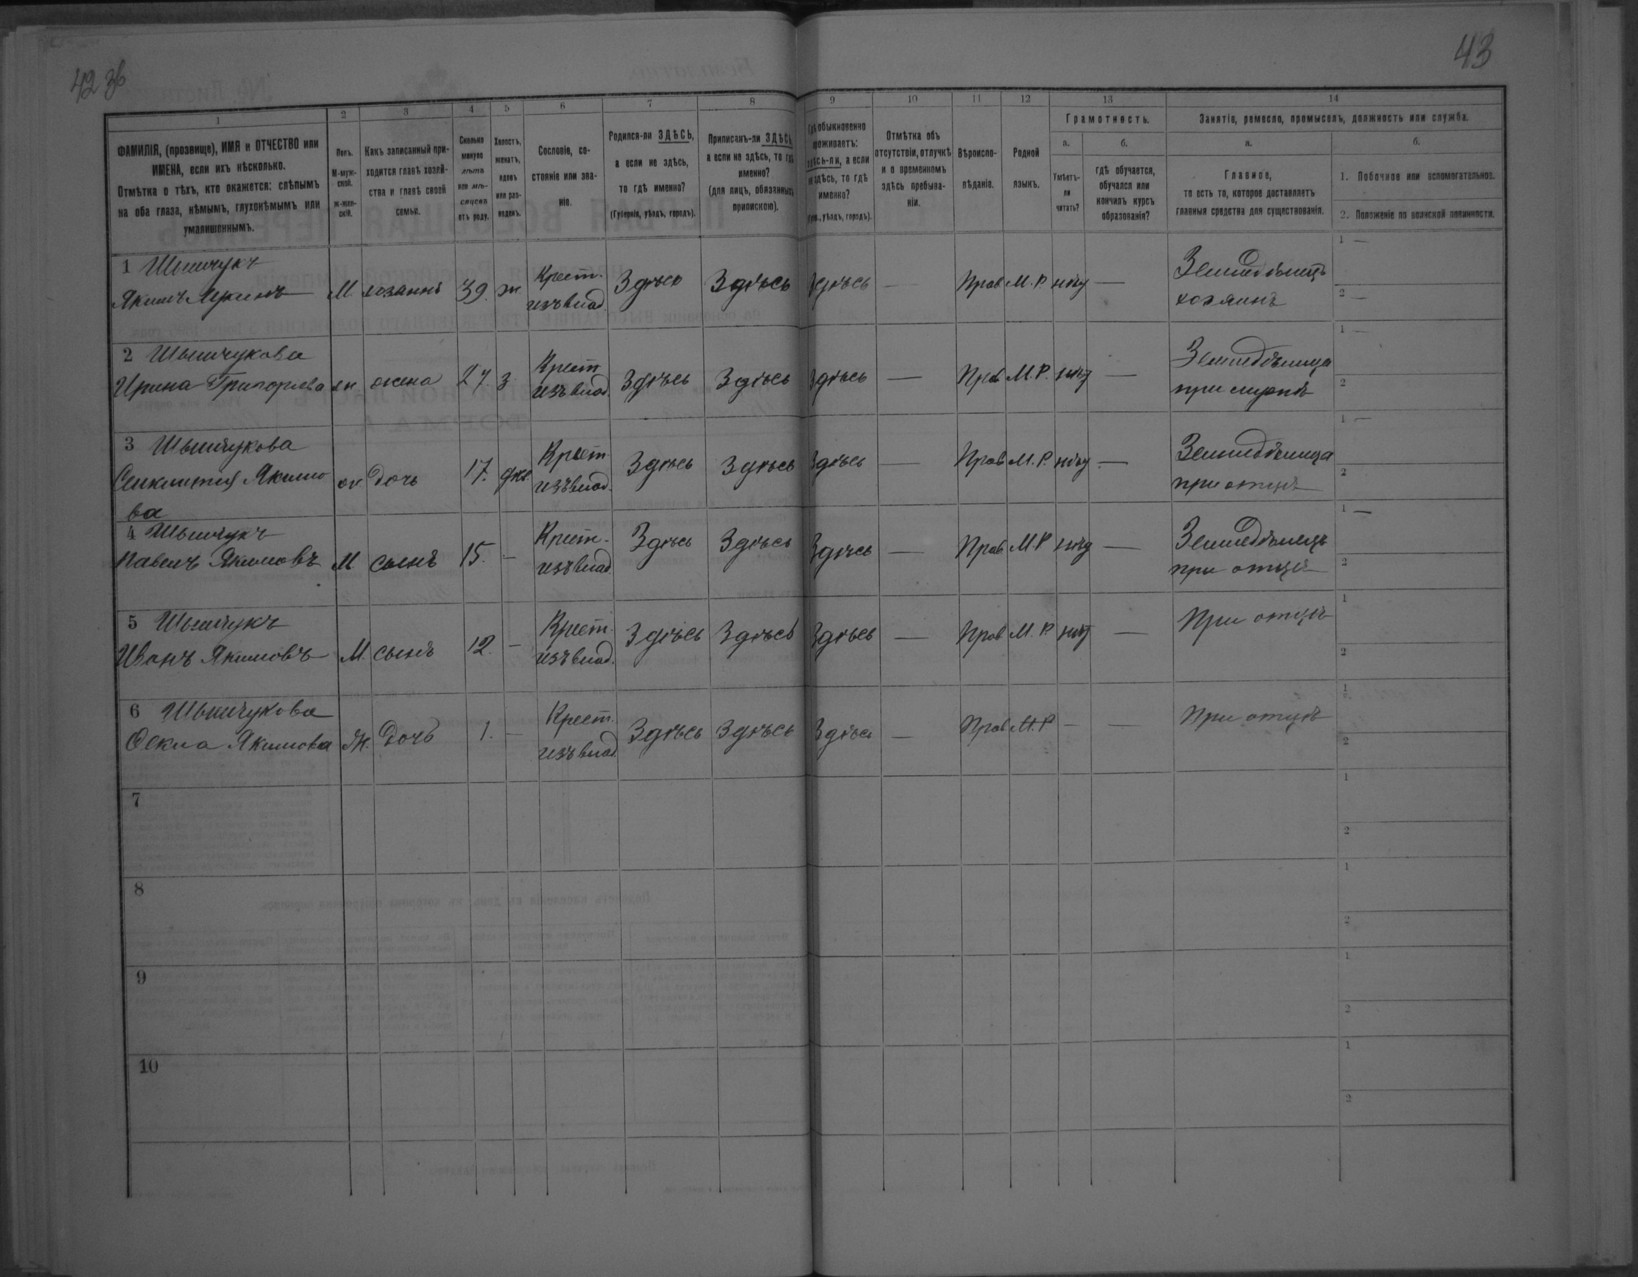 42 зв
43
1
2
3
4
5
6
7
8
9
10
11
12
13
14
ФАМИЛІЯ, (прозвище), ИМЯ и ОТЧЕСТВО или
ИМЕНА, если ихъ нѣсколько.
Отмѣтка о тѣхъ, кто окажется: слѣпымъ
на оба глаза, нѣмымъ, глухонѣмымъ или
умалишеннымъ.
Полъ.
М-муж-
ской.
Ж-жен-
скій.
Какъ записанный при-
ходится главѣ хозяй-
ства и главѣ своей
семьи.
Сколько
минуло
лѣтъ
или мѣ-
сяцевъ
отъ роду.
Холостъ,
женатъ,
вдовъ
или раз-
веденъ.
Сословіе, со-
стояніе или зва-
ніе.
Родился-ли ЗДѢСЬ,
а если не здѣсь,
то гдѣ именно?
(Губернія, уѣздъ, городъ).
Приписанъ-ли ЗДѢСЬ,
а если не здѣсь, то гдѣ
именно?
(для лицъ, обязанныхъ
припискою).
Гдѣ обыкновенно
проживаетъ:
здѣсь-ли, а если
не здѣсь, то гдѣ
именно?
(Губ., уѣздъ, городъ).
Отмѣтка объ
отсутствіи, отлучкѣ
и о временномъ
здѣсь пребыва-
ніи.
Вѣроиспо-
вѣданіе.
Родной
языкъ.
Грамотность.
а.
Умѣетъ-
ли
читать?
б.
гдѣ обучается,
обучался или
кончилъ курсъ
образованія?
Занятіе, ремесло, промыселъ, должность или служба.
а.
Главное,
то есть то, которое доставляетъ
главныя средства для существованія.
б.
1. Побочное или вспомогательное.
2. Положеніе по воинской повинности.
1 Шымчукъ
Якимъ М хозяинъ 39 ж Крест. изъ влад. Здѣсь Здѣсь Здѣсь — Прав М.Р нѣту — Земледѣлецъ хозяинъ
1 —
2 —
2 Шымчукова
Ирина Григорьева ж жена 27 з Крест изъ влад. Здѣсь Здѣсь Здѣсь — Прав М.Р. нѣту — Земледѣлица при мужѣ
1 —
2
3 Шымчукова
Якимо
ва ж Дочь 17. Крест изъ влад. Здѣсь Здѣсь Здѣсь — Прав М.Р. нѣту — Земледѣлица при отцѣ
1 —
2
4 Шымчукъ
Павелъ Якимовъ М сынъ 15. — Крест. изъ влад Здѣсь Здѣсь Здѣсь — Прав М.Р нѣту — Земледѣлецъ при отцѣ
1 —
2
5 Шымчукъ
Иванъ Якимовъ М. сынъ 12. — Крест. изъ влад. Здѣсь Здѣсь Здѣсь — Прав М.Р нѣту — При отцѣ
1
2
6 Шымчукова
Якимова Ж. Дочь 1. — Крест. изъ влад Здѣсь Здѣсь Здѣсь — Прав М.Р — — При отцѣ
1
2
7
1
2
8
1
2
9
1
2
10
1
2